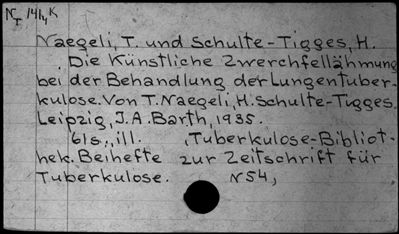 N I 141, K
Naegeli, T. und Schulte-Tigges, H.
Die Künstliche Zwerchfellähmung
bei der Behandlung der Lungentuber-
kulose. Von T. Naegeli, H. Schulte-Tigges.
Leipzig, J. A. Barth, 1935.
61s., ill. , Tuberkulose-Bibliot-
hek. Beihefte zur Zeitschrift für
Tuberkulose. N 54,